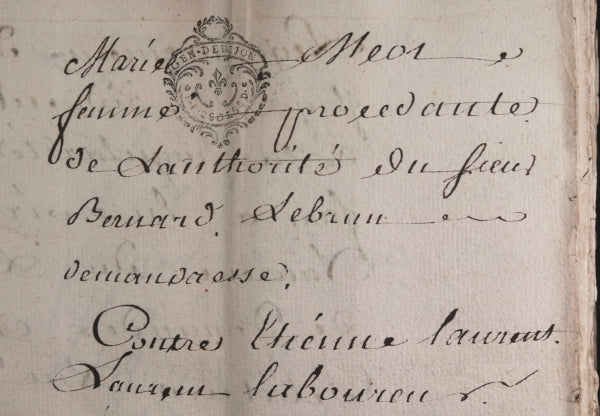 GEN·DE DIJON
Marie Meot
femme procedante
de Lauthorité du sieur
Bernard Lebrun
demandresse.
Contre Etiénne laurent.
Laurent laboureur.